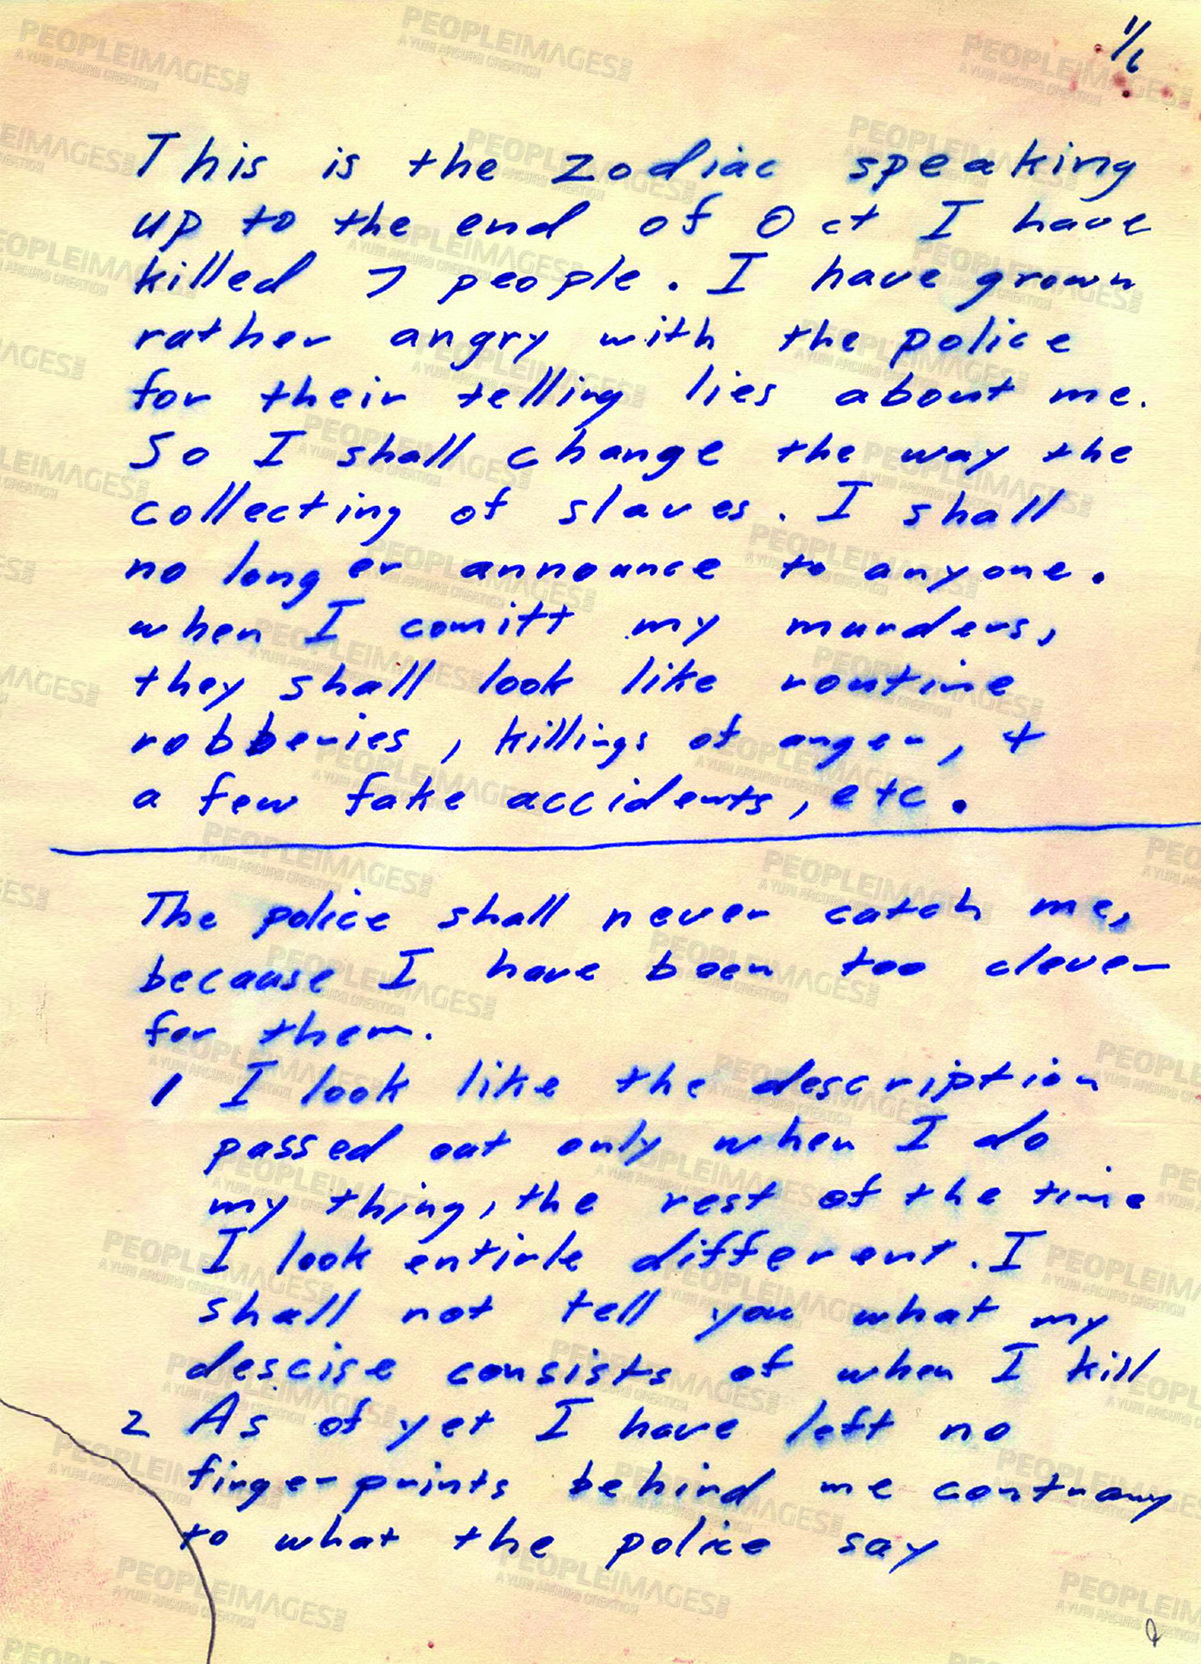 1/6
This is the zodiac speaking
up to the end of Oct I have
killed 7 people. I have grown
rather angry with the police
for their telling lies about me.
So I shall change the way the
collecting of slaves. I shall
no longer announce to anyone.
when I comitt my murders,
they shall look like routine
robberies, killings of anger, +
a few fake accidents, etc.
The police shall never catch me,
because I have been too clever
for them.
1 I look like the description
passed out only when I do
my thing, the rest of the time
I look entirle different. I
shall not tell you what my
descise consists of when I kill
2 As of yet I have left no
fingerprints behind me contrary
to what the police say
PEOPLEIMAGES.COM
A YURI ARCURS CREATION